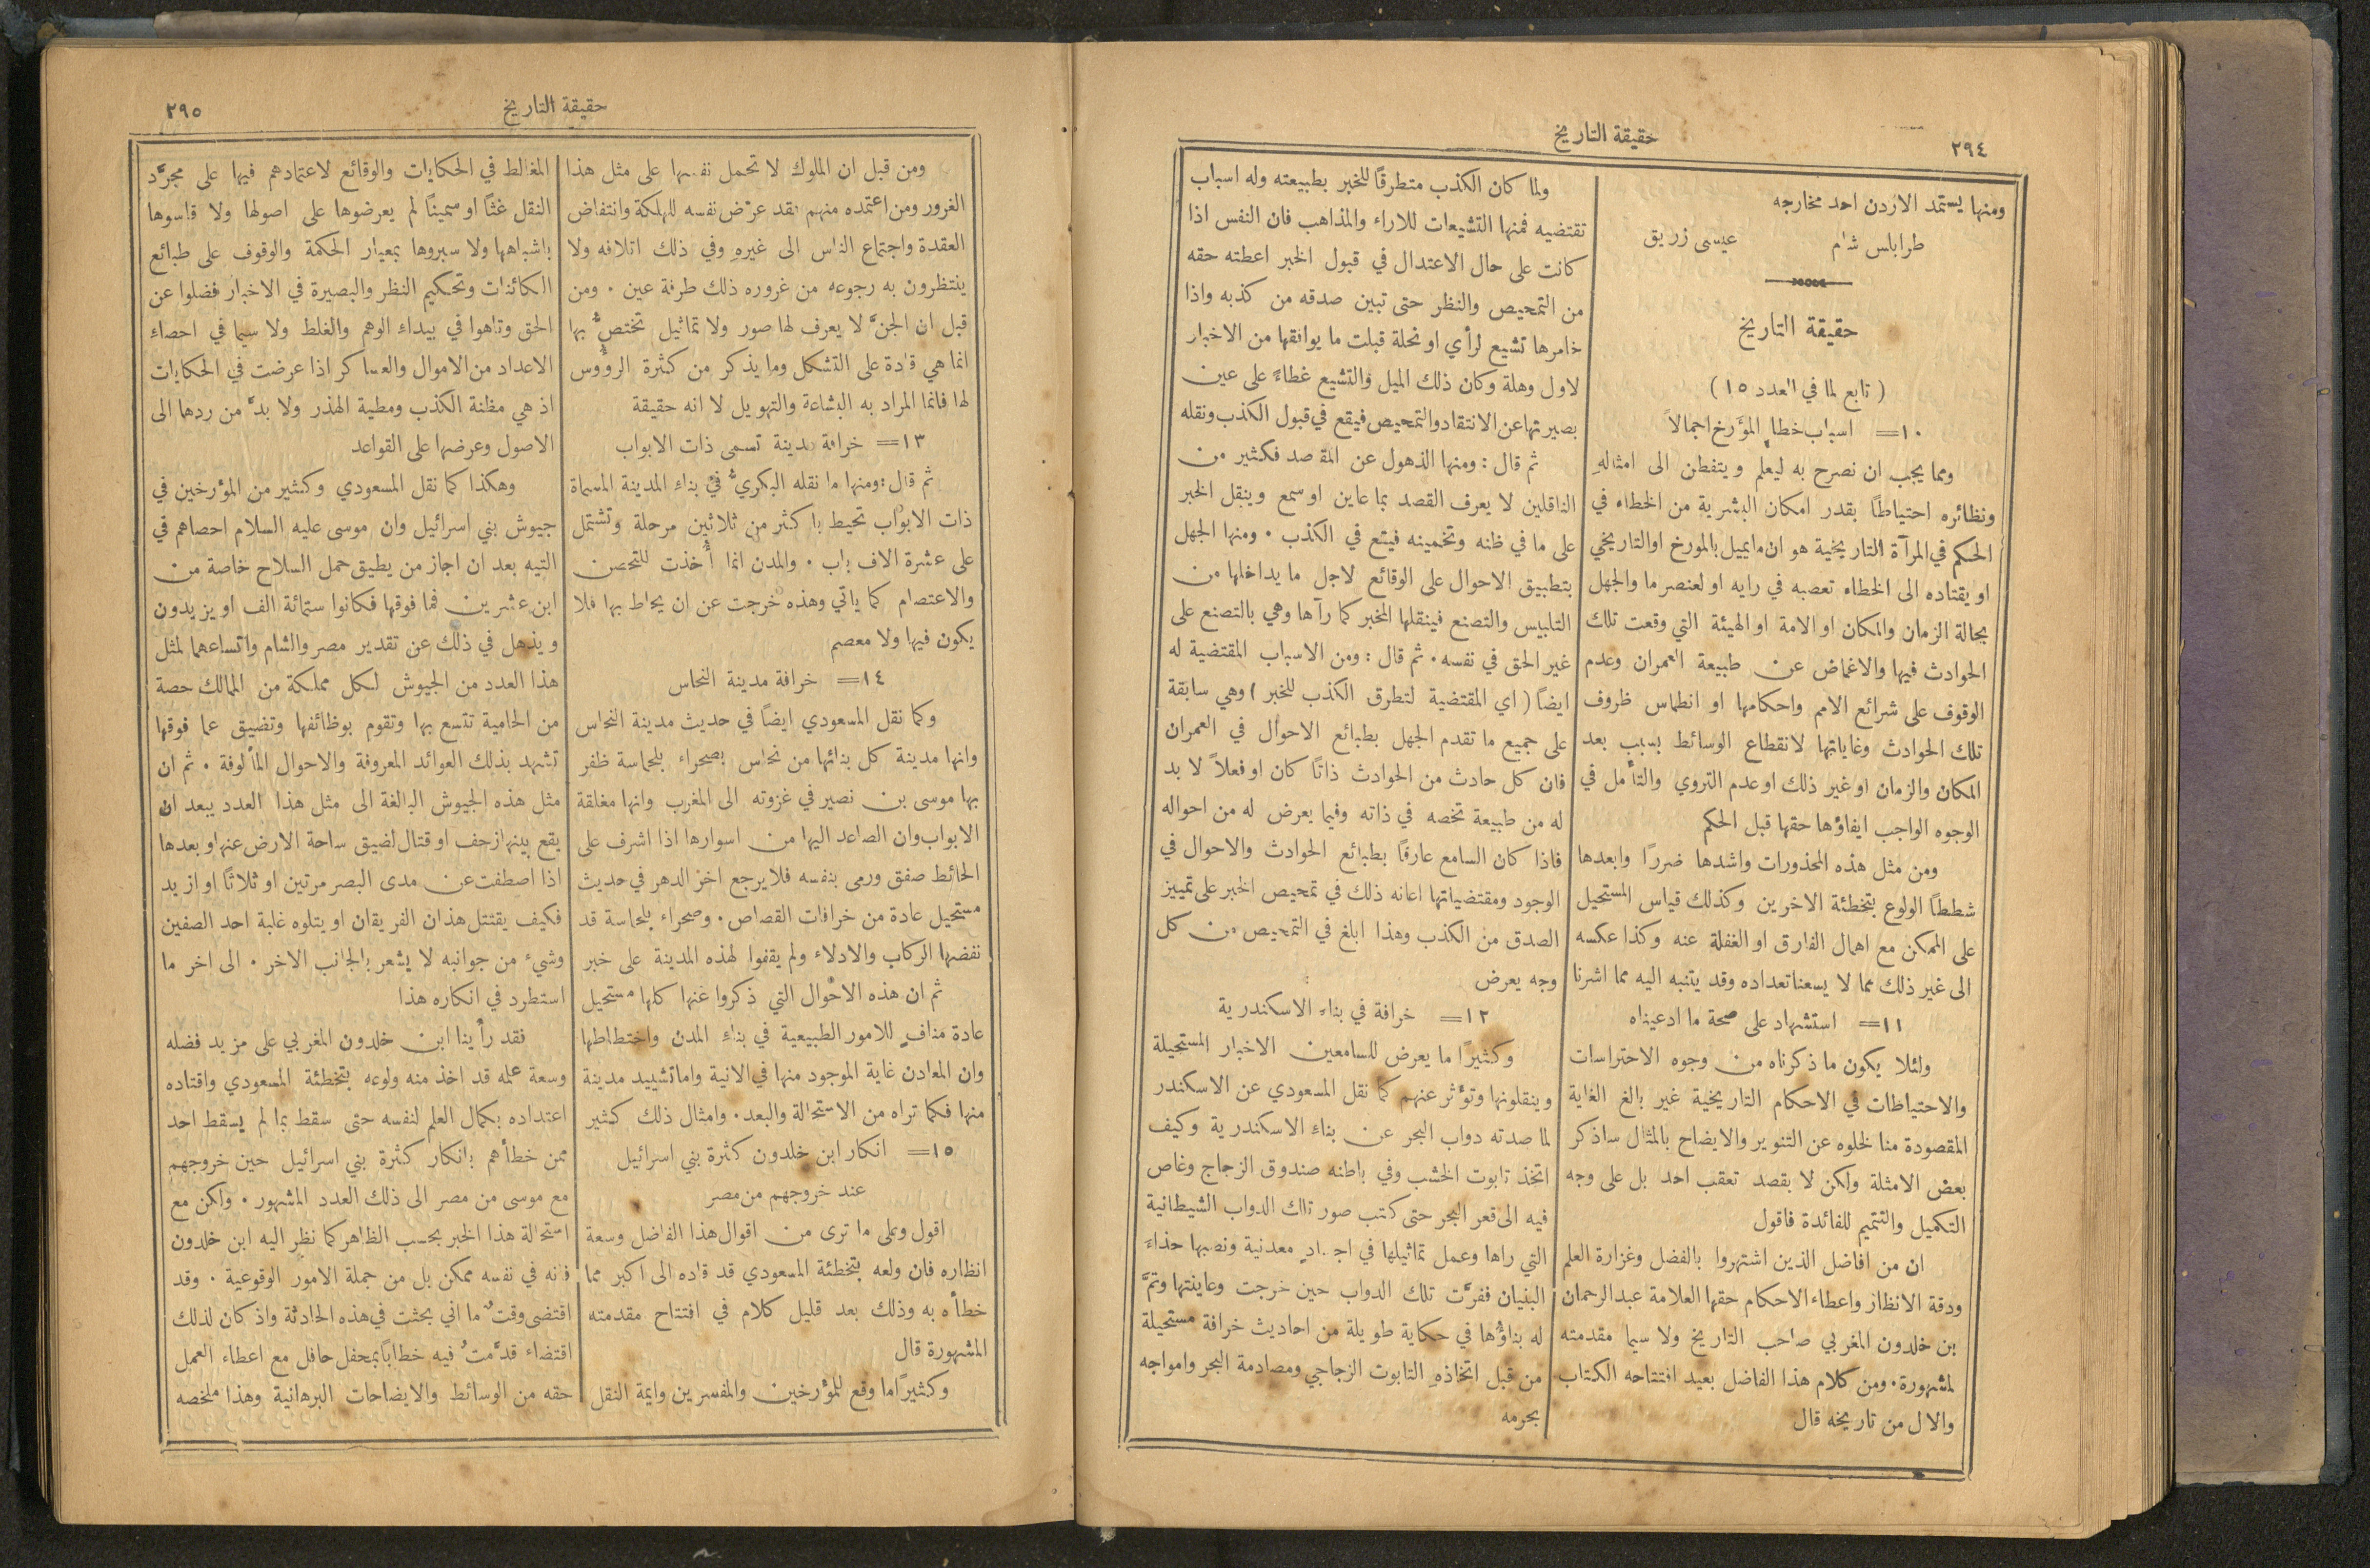 ٢٩٤
حقيقة التاريخ
ومنها يستمد الاردن احد مخارجه
طرابلس شام عيسى زريق
حقيقة التاريخ
( تابع لما في العدد ١٥ )
١٠= اسباب خطاء المؤرخ اجمالاً
ومما يجب ان نصرح به ليعلم ويتفطن الى امثالهِ
ونظائره احتياطًا بقدر امكان البشرية من الخطاء في
الحكم في المرآة التاريخية هو ان ما يميل بالمورخ او التاريخي
او يقتاده الى الخطاء تعصبه في رايه او لعنصر ما والجهل
بحالة الزمان والمكان او الامة او الهيئة التي وقعت تلك
الحوادث فيها والاغماض عن طبيعة العمران وعدم
الوقوف على شرائع الامم واحكامها او انطماس ظروف
تلك الحوادث وغاياتها لانقطاع الوسائط بسبب بعد
المكان والزمان او غير ذلك او عدم التروي والتأمل في
الوجوه الواجب ايفاؤها حقها قبل الحكم
ومن مثل هذه المحذورات واشدها ضررًا وابعدها
شططًا الولوع بتخطئة الاخرين وكذلك قياس المستحيل
على الممكن مع اهمال الفارق او الغفلة عنه وكذا عكسه
الى غير ذلك مما لا يسعنا تعداده وقد يتنبه اليه مما اشرنا
١١= استشهاد على صحة ما ادعيناه
ولئلا يكون ما ذكرناه من وجوه الاحتراسات
والاحتياطات في الاحكام التاريخية غير بالغ الغاية
المقصودة منا لخلوه عن التنوير والايضاح بالمثال ساذكر
بعض الامثلة ولكن لا بقصد تعقب احد بل على وجه
التكميل والتتميم للفائدة فاقول
ان من افاضل الذين اشتهروا بالفضل وغزارة العلم
ودقة الانظار واعطاء الاحكام حقها العلامة عبد الرحمان
بن خلدون المغربي صاحب التاريخ ولا سيما مقدمته
لمشهورة. ومن كلام هذا الفاضل بعيد افتتاحه الكتاب
والال من تاريخه قال
ولما كان الكذب متطرقًا للخبر بطبيعته وله اسباب
تقتضيه فمنها التشيعات للاراء والمذاهب فان النفس اذا
كانت على حال الاعتدال في قبول الخبر اعطته حقه
من التمحيص والنظر حتى تبين صدقه من كذبه واذا
خامرها تشيع لرأي او نحلة قبلت ما يوافقها من الاخبار
لاول وهلة وكان ذلك الميل والتشيع غطاءً على عين
بصيرتها عن الانتقاد والتمحيص فيقع في قبول الكذب ونقله
ثم قال : ومنها الذهول عن المقاصد فكثير من
الناقلين لا يعرف القصد بما عاين او سمع وينقل الخبر
على ما في ظنه وتخمينه فيتع في الكذب . ومنها الجهل
بتطبيق الاحوال على الوقائع لاجل ما يداخلها من
التلبيس والتصنع فينقلها المخبر كما رآها وهي بالتصنع على
غير الحق في نفسه. ثم قال : ومن الاسباب المقتضية له
ايضاً ( اي المقتضية لتطرق الكذب للخبر ) وهي سابقة
على جميع ما تقدم الجهل بطبائع الاحوال في العمران
فان كل حادث من الحوادث ذاتًا كان او فعلاً لا بد
له من طبيعة تخصه في ذاته وفيما يعرض له من احواله
فاذا كان السامع عارفًا بطبائع الحوادث والاحوال في
الوجود ومقتضياتها اعانه ذلك في تمحيص الخبر على تمييز
الصدق من الكذب وهذا ابلغ في التمحيص من كل
وجه يعرض
١٢= خرافة في بناء الاسكندرية
وكثيرًا ما يعرض للسامعين الاخبار المستحيلة
وينقلونها وتؤثر عنهم كما نقل المسعودي عن الاسكندر
لما صدته دواب البحر عن بناء الاسكندرية وكيف
اتخذ تابوت الخشب وفي باطنه صندوق الزجاج وغاص
فيه الى قعر البحر حتى كتب صور تلك الدواب الشيطانية
التي راها وعمل تماثيلها في اجسادٍ معدنية ونصبها حذاء
البنيان ففرَّت تلك الدواب حين خرجت وعاينتها وتمَّ
له بناؤُها في حكاية طويلة من احاديث خرافة مستحيلة
من قبل اتخاذهِ التابوت الزجاجي ومصادمة البحر وامواجه
بجرمه
حقيقة التاريخ
٢٩٥
ومن قبل ان الملوك لا تحمل نفسها على مثل هذا
الغرور ومن اعتمده منهم فقد عرّض نفسه للهلكة وانتفاض
العقدة واجتماع الناس الى غيرهِ وفي ذلك اتلافه ولا
ينتظرون به رجوعه من غروره ذلك طرفة عين . ومن
قبل ان الجنَّ لا يعرف لها صور ولا تماثيل تختصُّ بها
انما هي قادة على التشكل وما يذكر من كثرة الرؤُوس
لها فانما المراد به البشاعة والتهويل لا انه حقيقة
١٣= خرافة مدينة تسمى ذات الابواب
ثم قال : ومنها ما نقله البكريُّ في بناء المدينة المسماة
ذات الابواب تحيط باكثر من ثلاثين مرحلة وتشتمل
على عشرة الاف باب . والمدن انما أُخذت للتحصن
والاعتصام كما ياتي وهذه خرجت عن ان يحاط بها فلا
يكون فيها ولا معصم
١٤= خرافة مدينة النحاس
وكما نقل المسعودي ايضًا في حديث مدينة النحاس
وانها مدينة كل بنائها من نحاس بصحراء بلجماسة ظفر
بها موسى بن نصير في غزوته الى المغرب وانها مغلقة
الابواب وان الصاعد اليها من اسوارها اذا اشرف على
الحائط صفق ورمى بنفسه فلا يرجع اخر الدهر في حديث
مستحيل عادة من خرافات القصاص . وصحراء بلجماسة قد
نفضها الركاب والادلاء ولم يقفوا لهذه المدينة على خبر
ثم ان هذه الاحوال التي ذكروا عنها كلها مستحيل
عادة منافٍ للامور الطبيعية في بناءِ المدن واختطاطها
وان المعادن غاية الموجود منها في الانية واما تشييد مدينة
منها فكما تراه من الاستحالة والبعد. وامثال ذلك كثير
١٥= انكار ابن خلدون كثرة بني اسرائيل
عند خروجهم من مصر
اقول وعلى ما ترى من اقوال هذا الفاضل وسعة
انظاره فان ولعه بتخطئة المسعودي قد قاده الى اكبر مما
خطأه به وذلك بعد قليل كلام في افتتاح مقدمته
المشهورة قال
وكثيرًا ما وقع للمؤرخين والمفسرين وايمة النقل
المغالط في الحكايات والوقائع لاعتمادهم فيها على مجرَّد
النقل غثًا او سمينًا لم يعرضوها على اصولها ولا قاسوها
باشباهها ولا سبروها بمعيار الحكمة والوقوف على طبائع
الكائنات وتحكيم النظر والبصيرة في الاخبار فضلوا عن
الحق وتاهوا في بيداء الوهم والغلط ولا سيما في احصاء
الاعداد من الاموال والعساكر اذا عرضت في الحكايات
اذ هي مظنة الكذب ومطية الهذر ولا بدَّ من ردها الى
الاصول وعرضها على القواعد
وهكذا كما نقل المسعودي وكثير من المؤرخين في
جيوش بني اسرائيل وان موسى عليه السلام احصاهم في
التيه بعد ان اجاز من يطيق حمل السلاح خاصة من
ابن عشرين فما فوقها فكانوا ستمائة الف او يزيدون
ويذهل في ذلك عن تقدير مصر والشام واتساعهما لمثل
هذا العدد من الجيوش لكل مملكة من الممالك حصة
من الحامية تتسع بها وتقوم بوظائفها وتضيق عما فوقها
تشهد بذلك العوائد المعروفة والاحوال المألوفة . ثم ان
مثل هذه الجيوش البالغة الى مثل هذا العدد يبعد ان
يقع بينها زحف او قتال لضيق ساحة الارض عنها وبعدها
اذا اصطفت عن مدى البصر مرتين او ثلاثًا او ازيد
فكيف يقتتل هذان الفريقان او يتلوه غلبة احد الصفين
وشيء من جوانبه لا يشعر بالجانب الاخر . الى اخر ما
استطرد في انكاره هذا
فقد رأينا ابن خلدون المغربي على مزيد فضله
وسعة علمه قد اخذ منه ولوعه بتخطئة المسعودي واقتاده
اعتداده بكمال العلم لنفسه حتى سقط بما لم يسقط احد
ممن خطأهم بانكار كثرة بني اسرائيل حين خروجهم
مع موسى من مصر الى ذلك العدد المشهور . ولكن مع
استحالة هذا الخبر بحسب الظاهر كما نظر اليه ابن خلدون
فانه في نفسه ممكن بل من جملة الامور الوقوعية . وقد
اقتضى وقت ما اني بحثت في هذه الحادثة واذ كان لذلك
اقتضاء قدَّمتُ فيه خطابًا بمحفل حافل مع اعطاء العمل
حقه من الوسائط والايضاحات البرهانية وهذا ملخصه